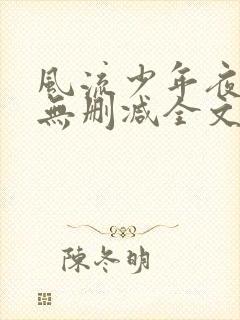 風流少年夜
無删减全文
陳冬明